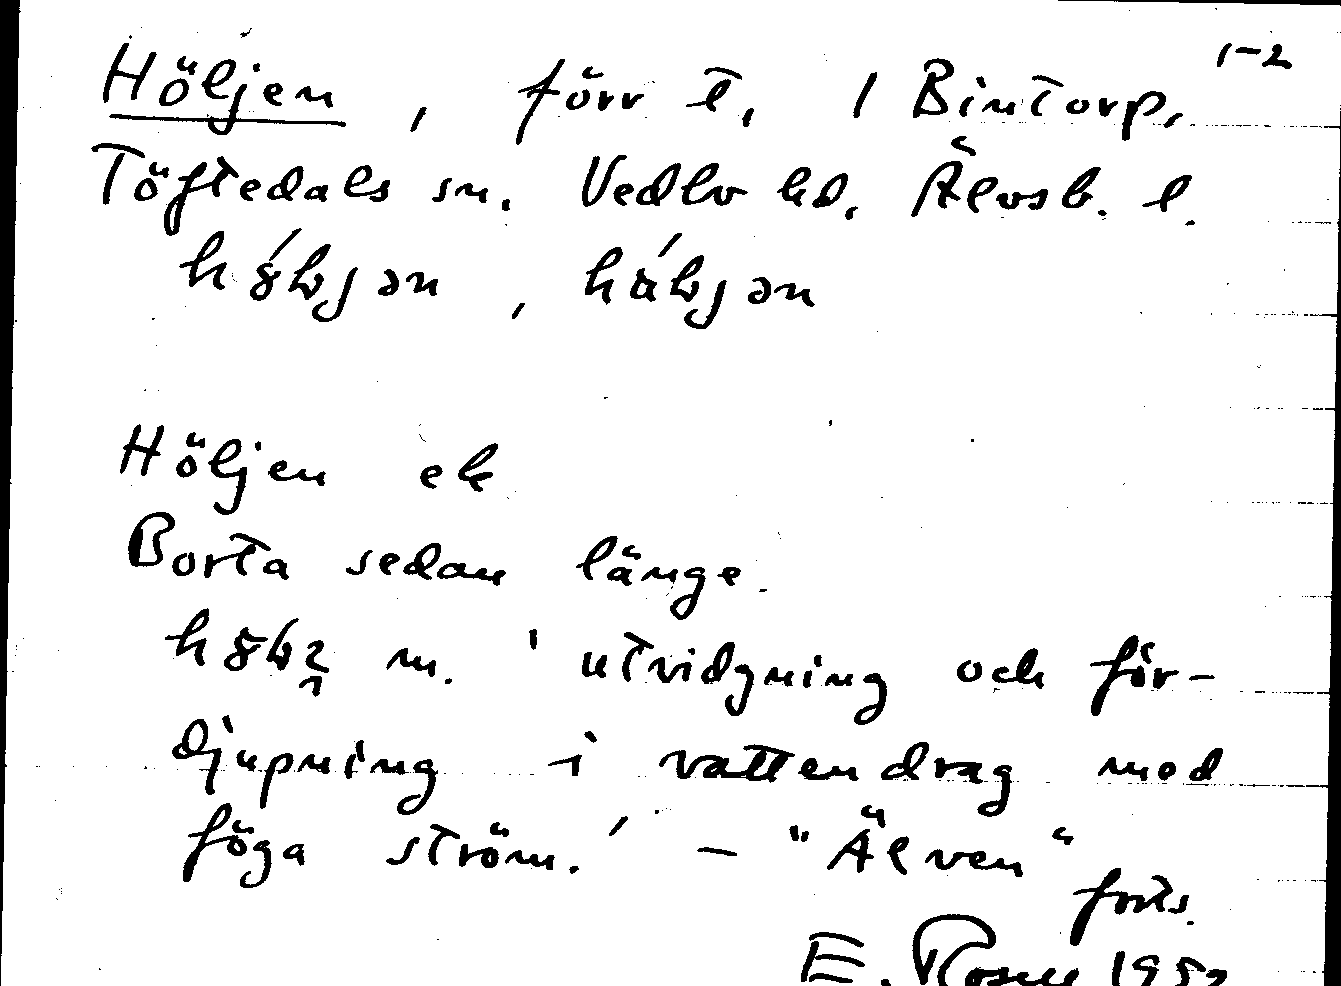 1-2
Höljen, förr t. 1 Bintorp,
Töftedals sn. Vedbo hd. Älvsb. l.
Höljen ek
Borta sedan länge.
m. 'utvidgning och för-
djupning i vattendrag med
föga ström.' – "Älven"
forts.
E. 195